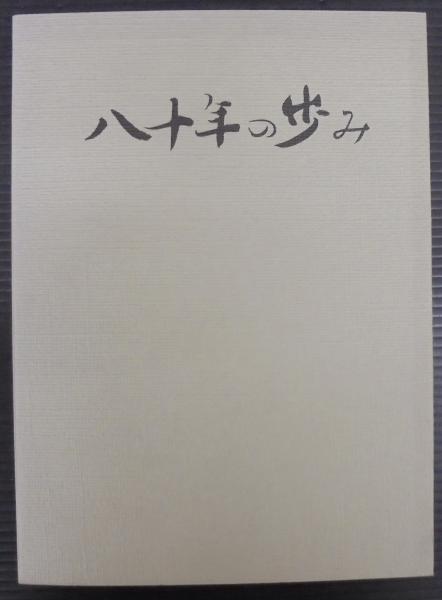 八十年の歩み